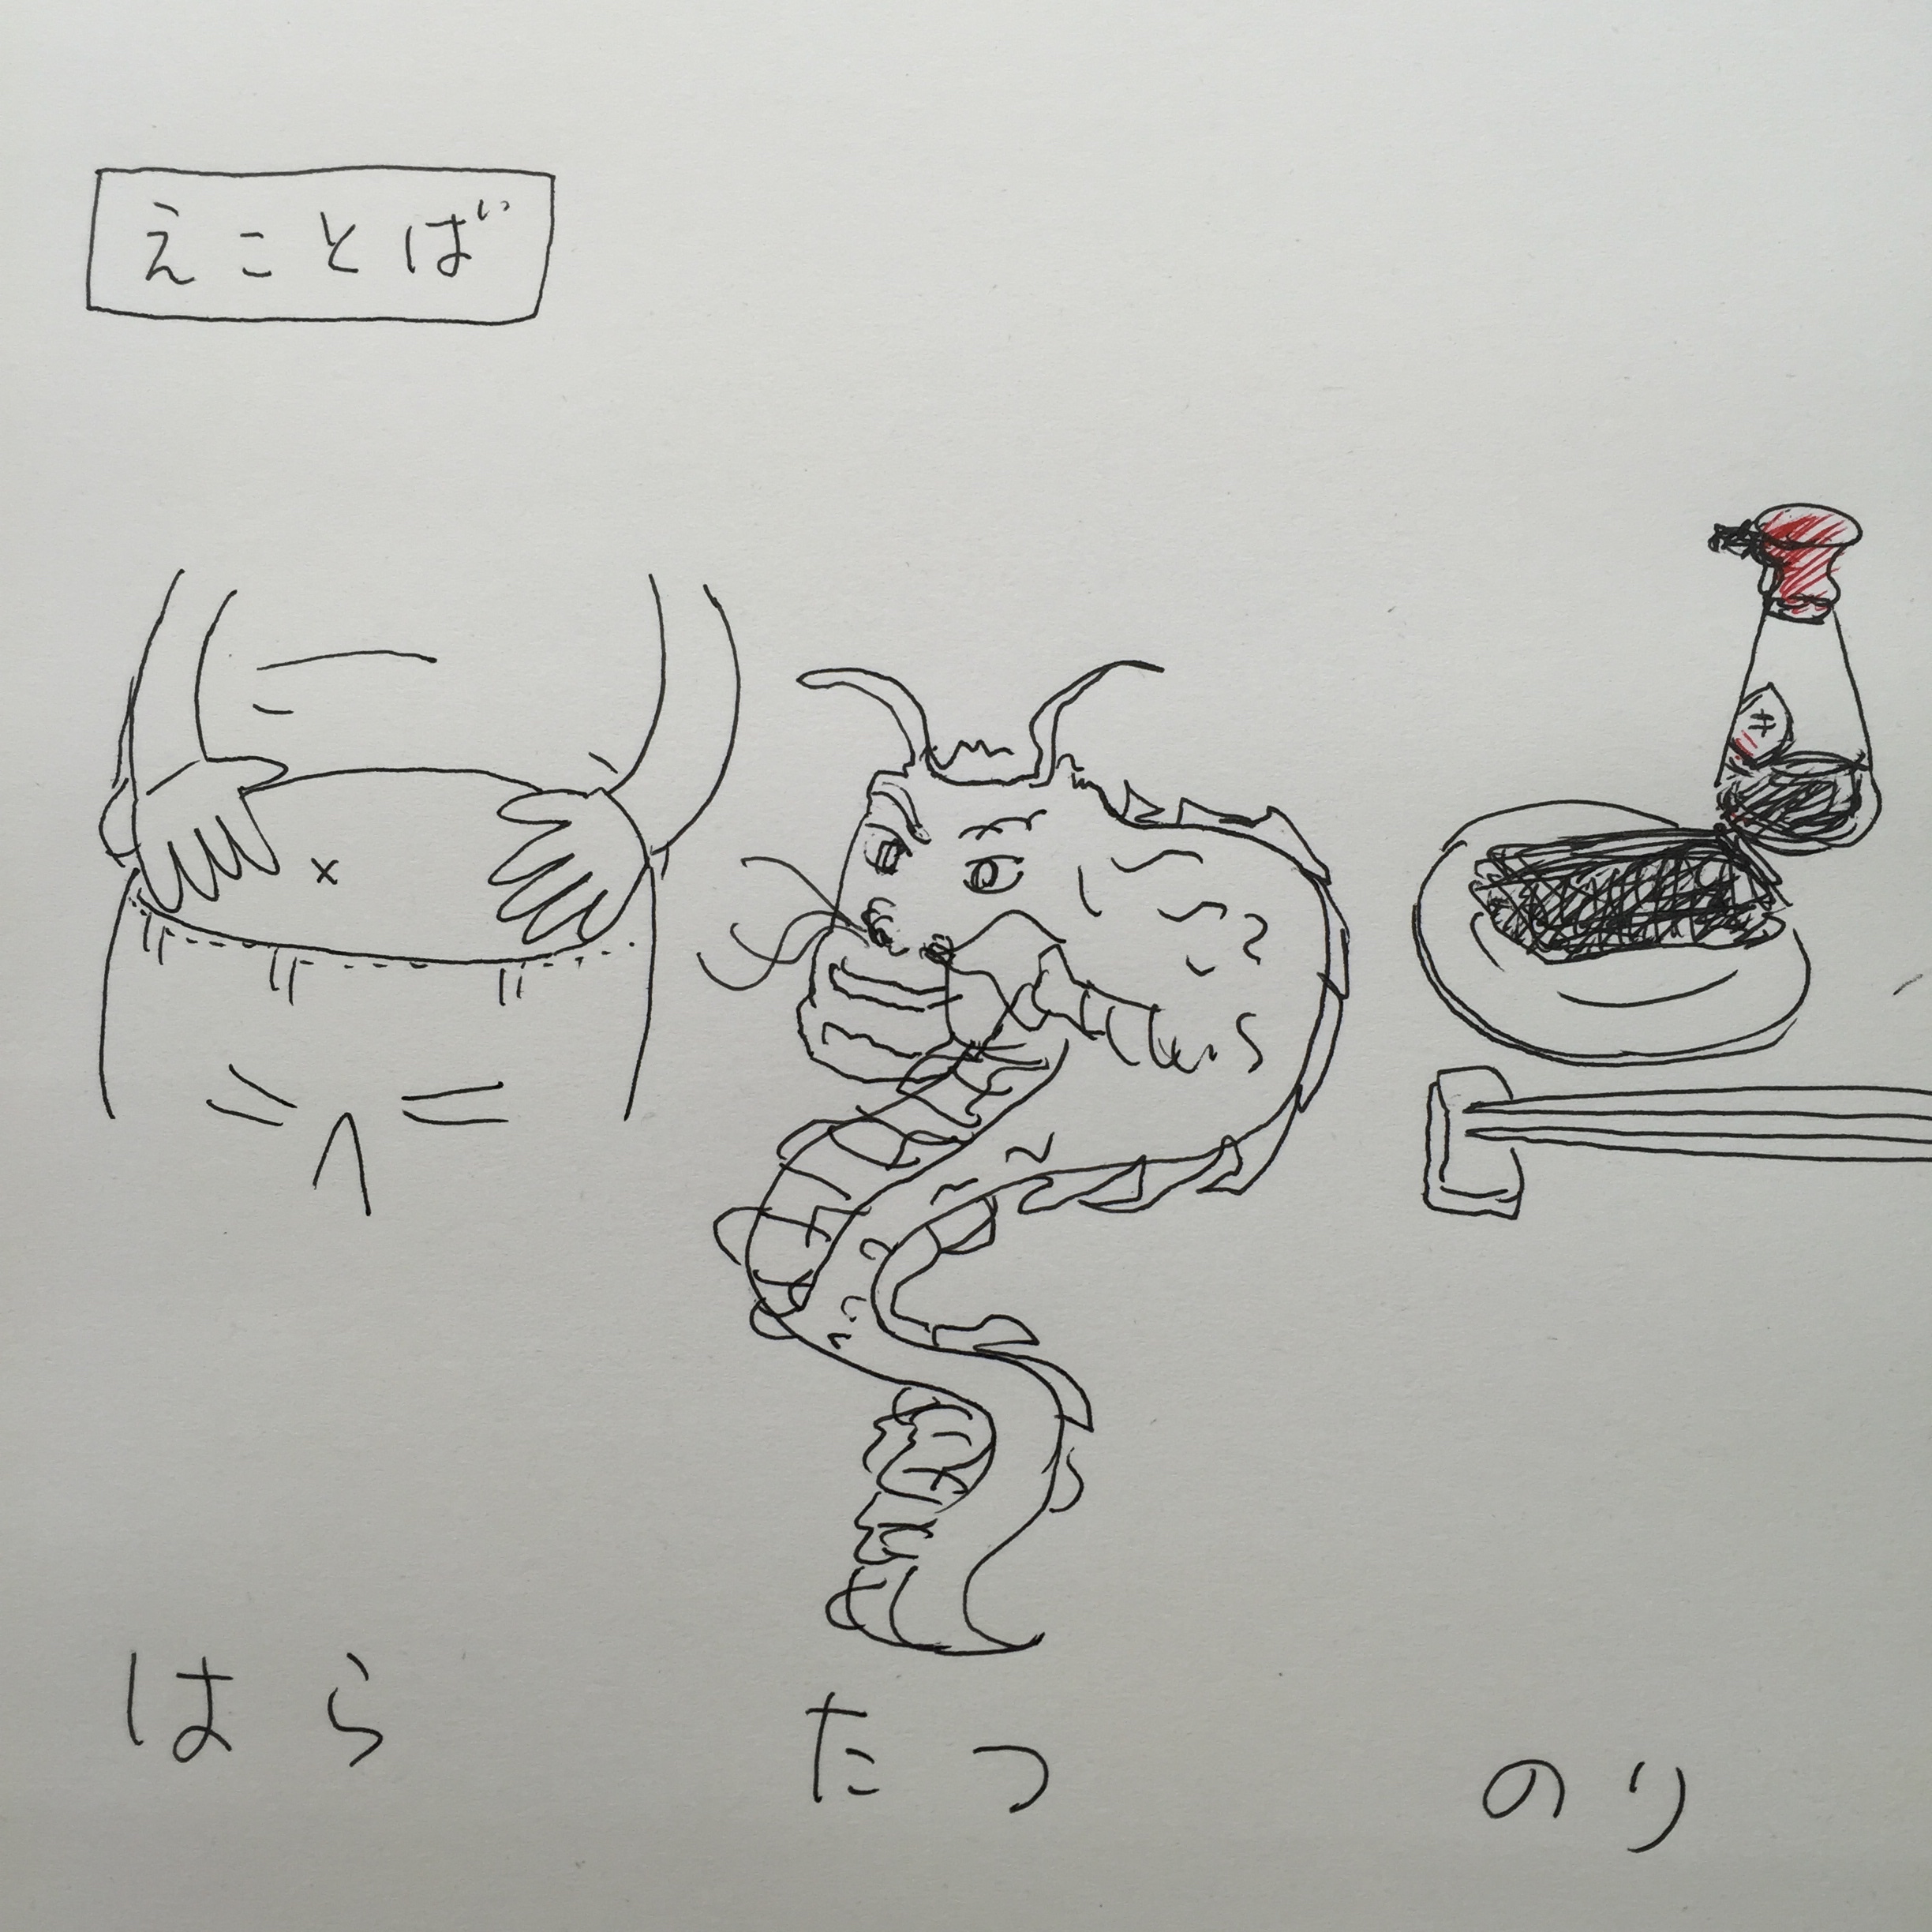 えことば
キ
はら
たつ
のり